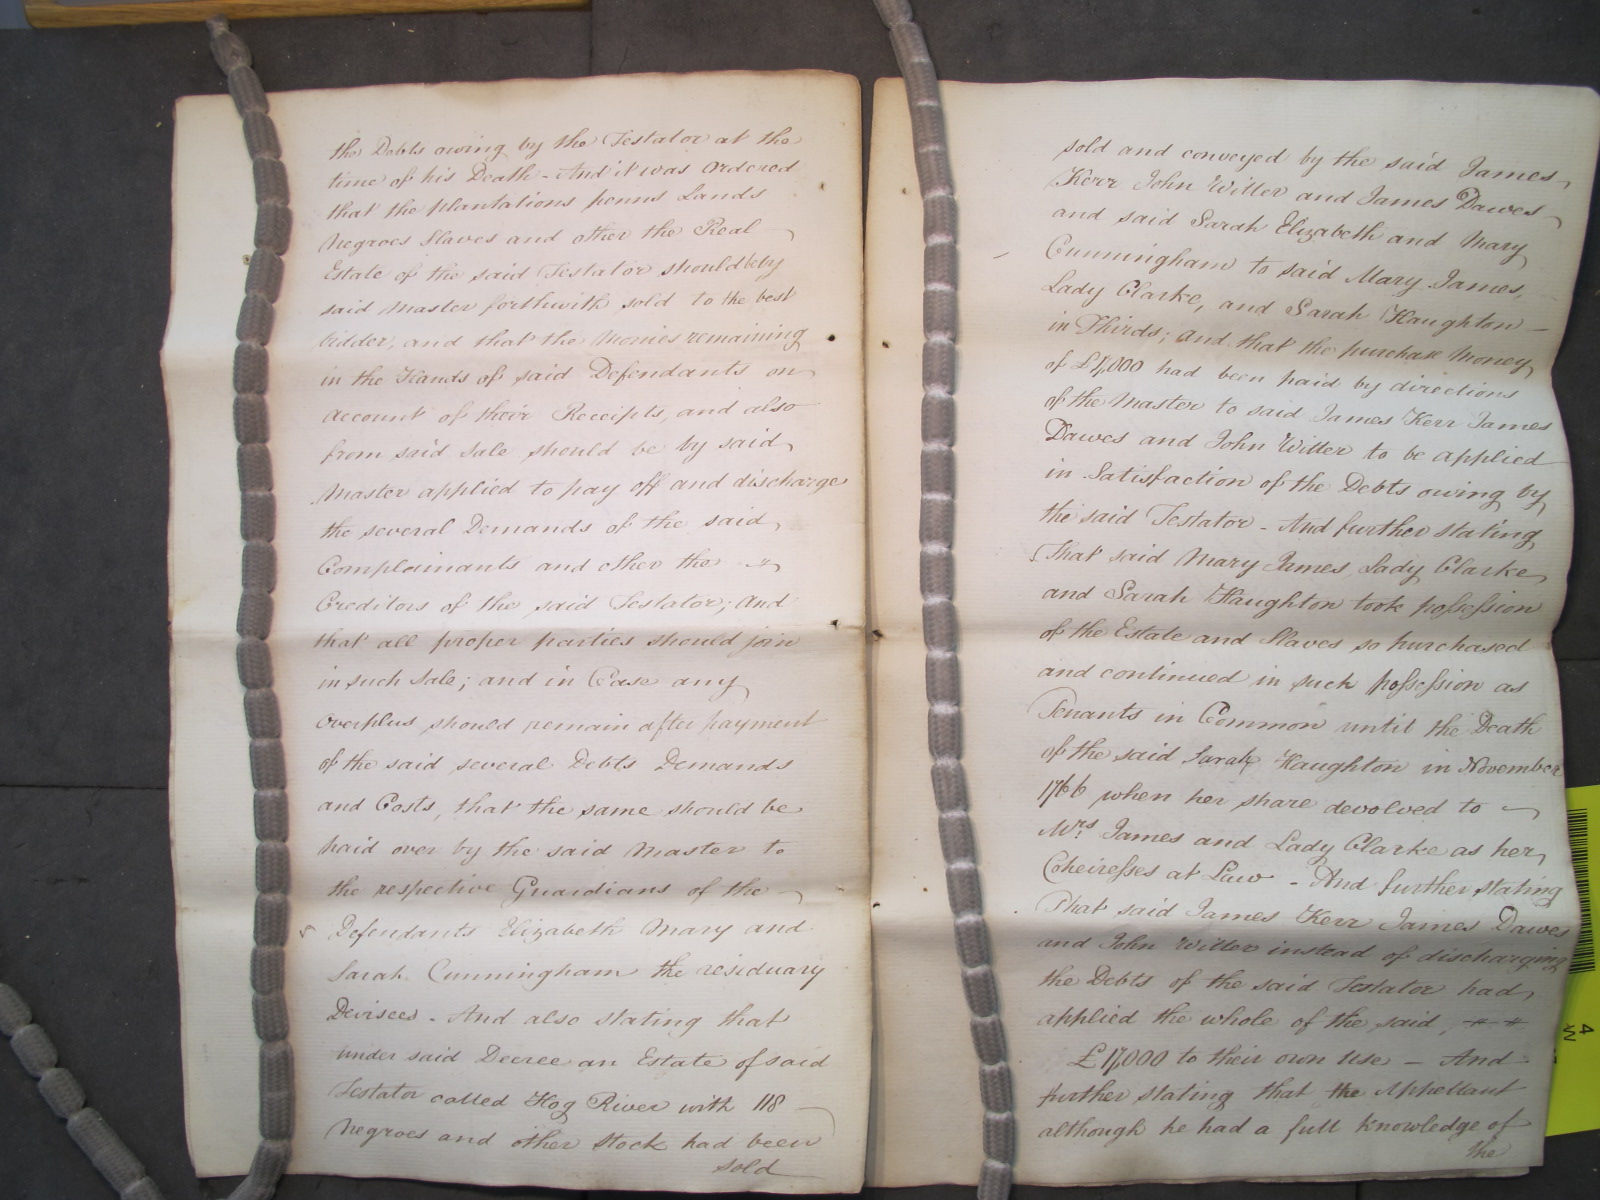 the Debts owing by the Testator at the
time of his Death - And it was Ordered
that the plantations penns Lands
Negroes Slaves and other the Real
Estate of the said Testator should be by
said Master forthwith sold to the best
bidder, and that the Monies remaining
in the Hands of said Defendants on
account of their Receipts, and also
from said Sale should be by said
Master applied to pay off and discharge
the several Demands of the said
Complainants and other the
Creditors of the said Testator; And
that all proper parties should join
in such Sale; and in Case any
overplus should remain after payment
of the said several Debts Demands
and Costs, that the same should be
paid over by the said Master to
the respective Guardians of the
Defendants Elizabeth Mary and
Sarah Cunningham the residuary
Devisees - And also stating that
under said Decree an Estate of said
Testator called Hog River with 118
Negroes and other Stock had been
sold
sold and conveyed by the said James
Kerr John Witter and James Dawes
and said Sarah Elizabeth and Mary
Cunningham to said Mary James,
Lady Clarke, and Sarah Haughton
in Thirds; And that the purchase Money
of £17,000 had been paid by directions
of the Master to said James Kerr James
Dawes and John Witter to be applied
in Satisfaction of the Debts owing by
the said Testator - And further stating
That said Mary James, Lady Clarke
and Sarah Haughton took possession
of the Estate and Slaves so purchased
and continued in such possession as
Tenants in Common until the Death
of the said Sarah Haughton in November
1766 when her share devolved to
Mrs James and Lady Clarke as her
Coheiresses at Law - And further stating
That said James Kerr James Dawes
and John Witter instead of discharging
the Debts of the said Testator had
applied the whole of the said
£17,000 to their own Use - And
further stating that the Appellant
although he had a full knowledge of
the